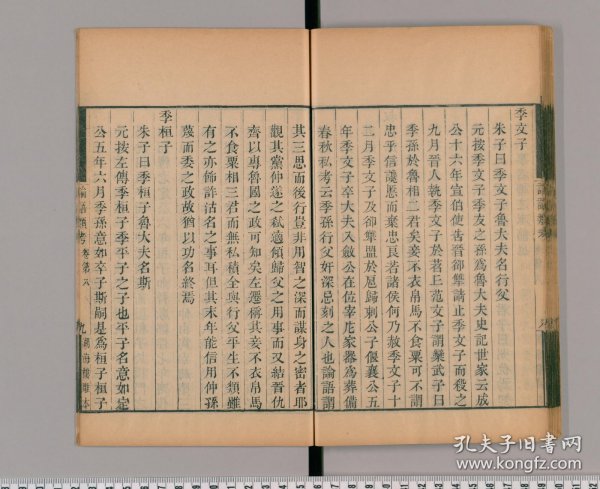 季文子
朱子曰季文子魯大夫名行父
元按季文子季友之孫爲魯大夫史記世家云成
公十六年宣伯使告晉郤犨請止季文子而殺之
九月晉人執季文子於苕丘范文子謂欒武子曰
季孫於魯相二君矣妾不衣帛馬不食粟可不謂
忠乎信讒慝而棄忠良若諸侯何乃赦季文子十
二月季文子及郤犨盟於扈歸刺公子偃襄公五
年季文子卒大夫入斂公在位宰庀家器爲葬備
春秋私考云季孫行父奸深忌刻之人也論語謂
其三思而後行豈非用智之深而謀身之密者耶
觀其黨仲遂之弒適傾歸父之用事而又結晉仇
齊以專魯國之政可知矣左氏稱其妾不衣帛馬
不食粟相三君而無私積全與行父平生不類雖
有之亦飾詐沽名之事耳但其末年能信用仲孫
蔑而委之政故猶以功名終焉
季桓子
朱子曰季桓子魯大夫名斯
元按左傳季桓子季平子之子也平子名意如定
公五年六月季孫意如卒子斯嗣是爲桓子桓子
論語類考 卷第八
九 湖海樓雕本
孔夫子旧书网
www.kongfz.com